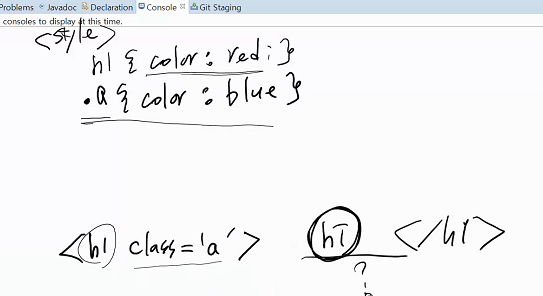 Problems Javadoc Declaration Console Git Staging
consoles to display at this time.
<style>
h1 { color : red; }
.a { color : blue }
<h1 class='a'> hi </h1>
?